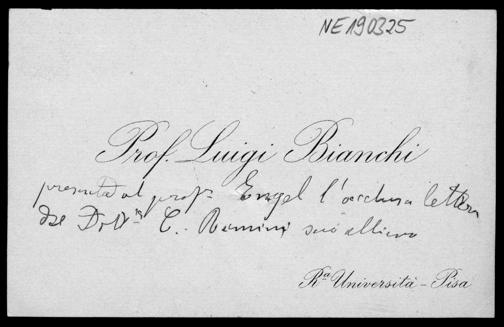 NE190325
Prof. Luigi Bianchi
presenta al prof.re Engel l'acclusa lettera
del Dott.r C. suo allievo
R.a Università - Pisa